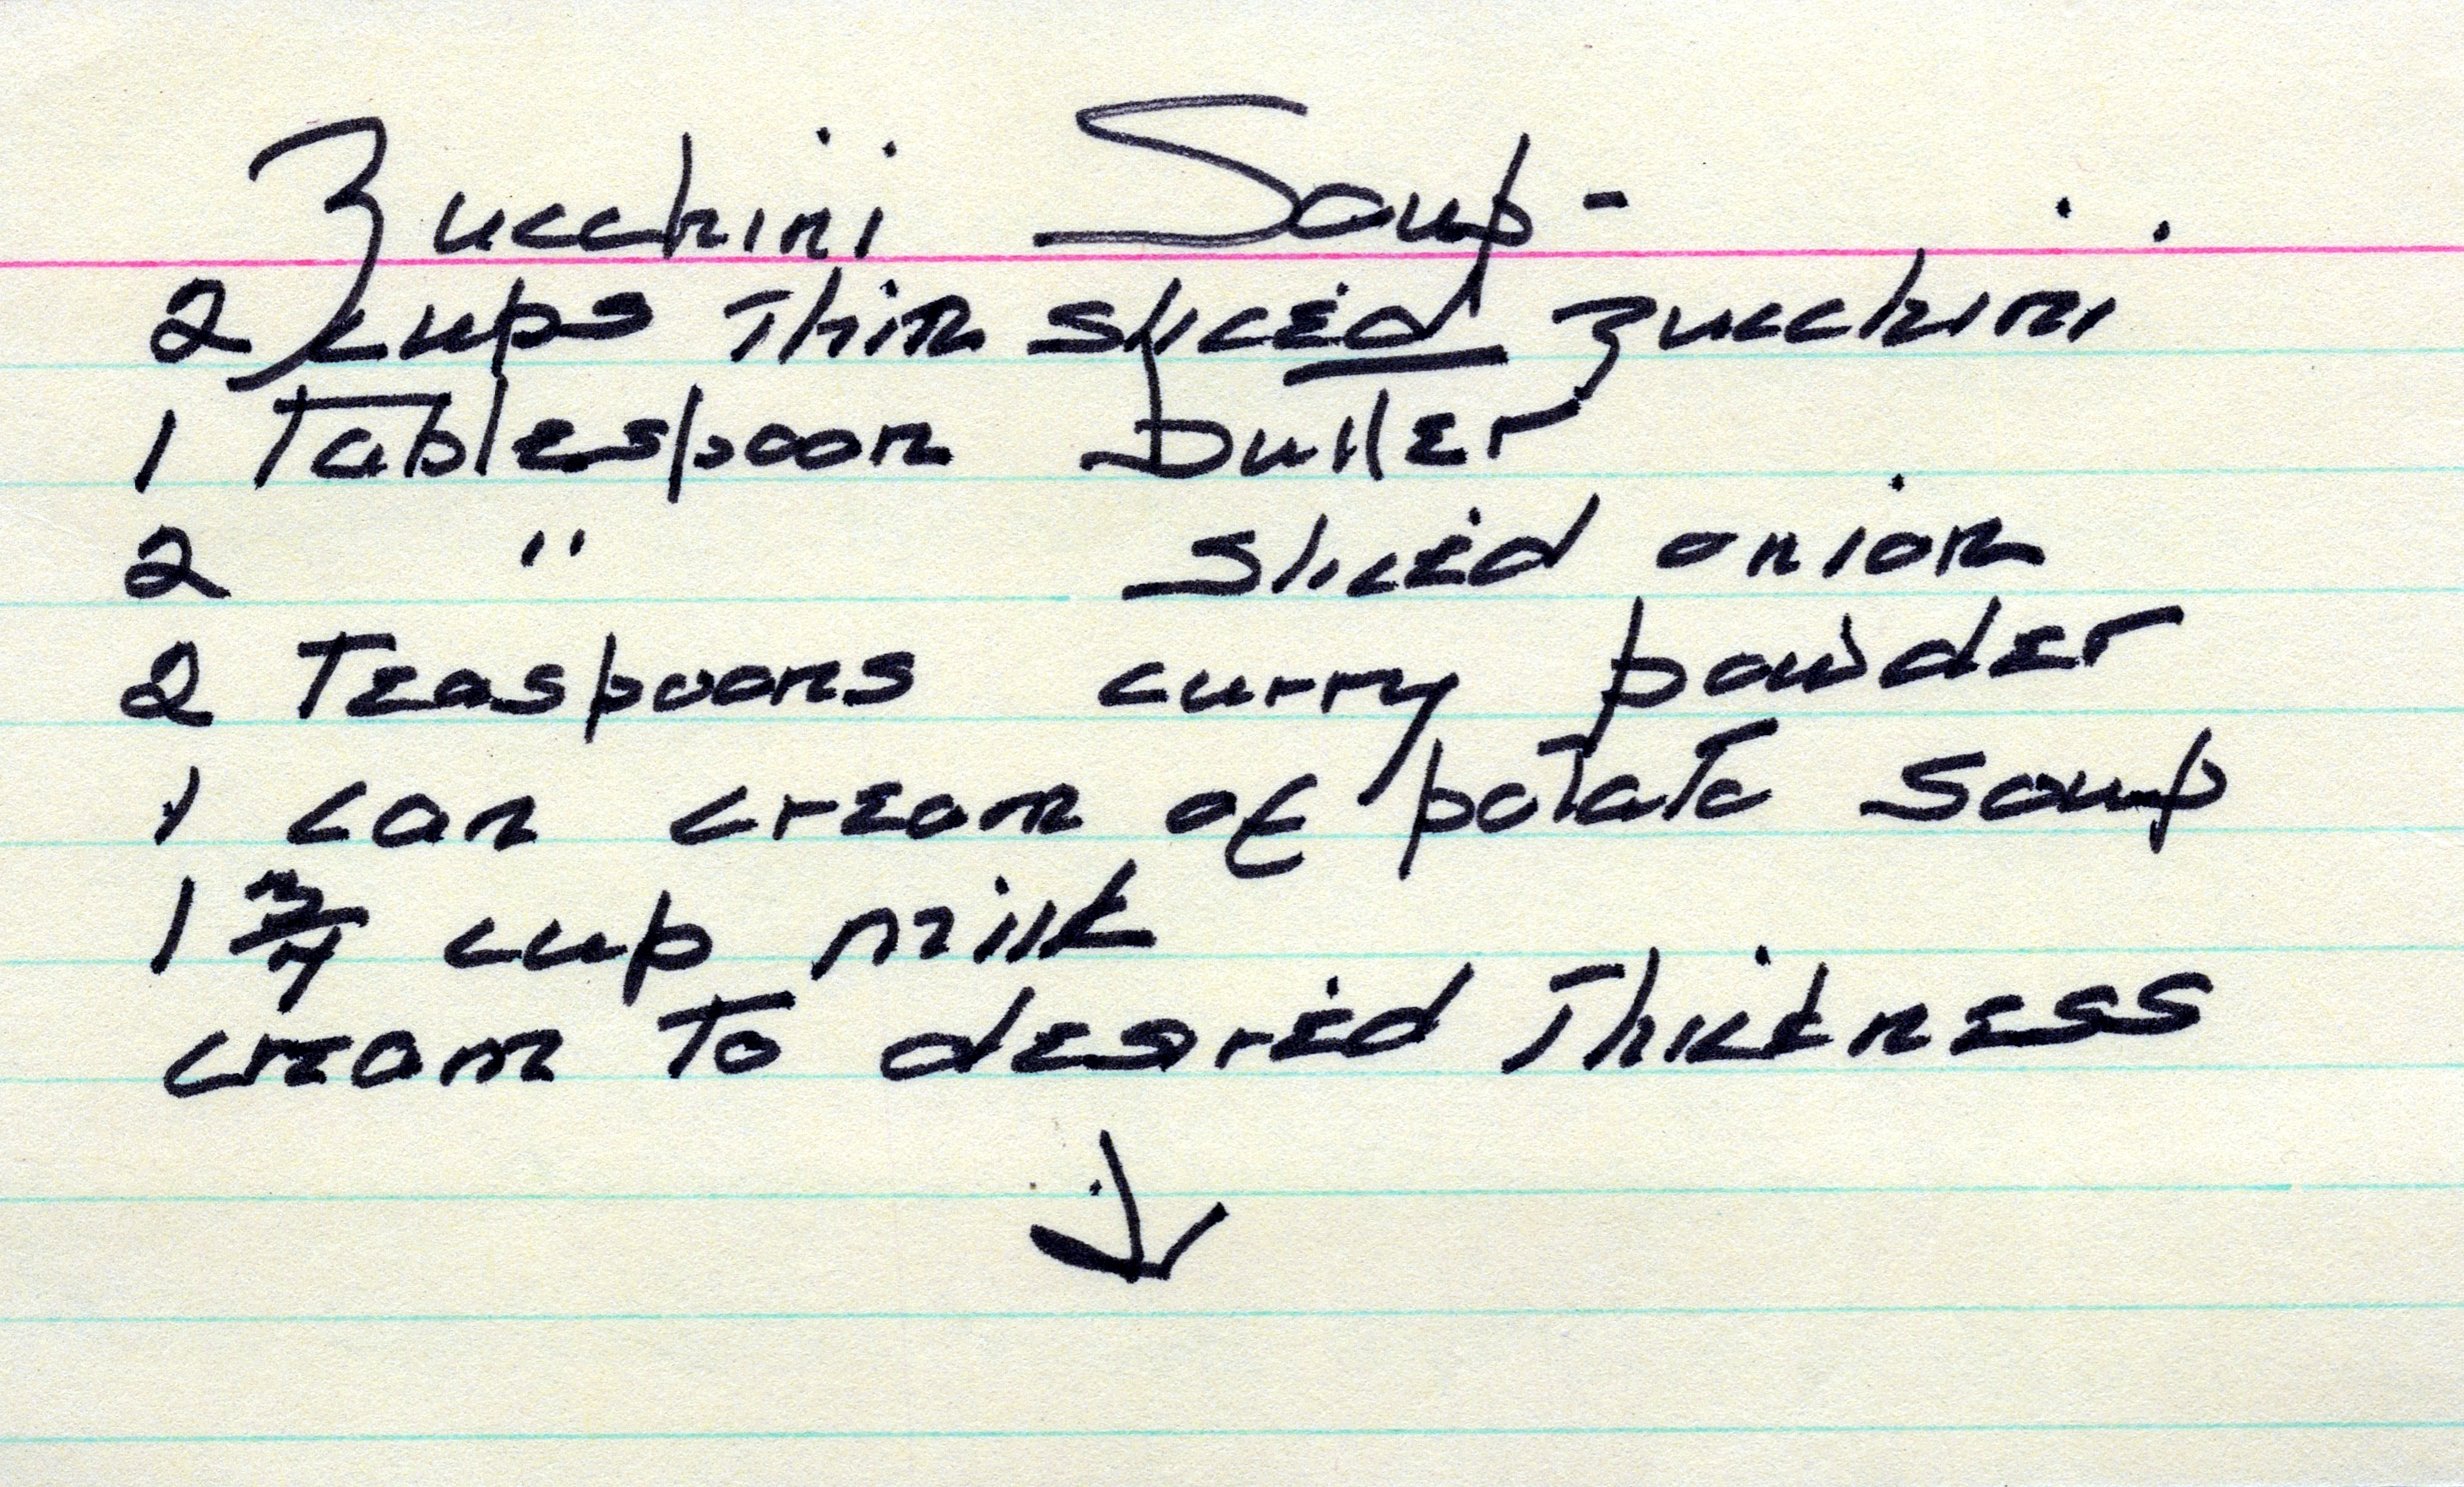 Zucchini Soup-
2 cups Thin sliced zucchini
1 Tablespoon butter
2 " sliced onion
2 Teaspoons curry powder
1 can cream of potato soup
1 3/4 cup milk
cream To desired Thickness
↓